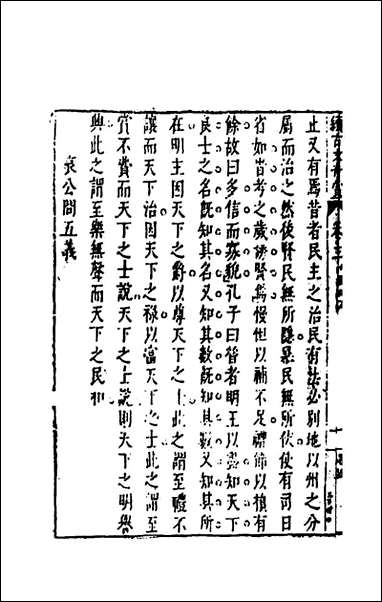 續古文奇賞
止又有焉昔者民主之治民有法必別地以州之分
屬而治之然後賢民無所隱暴民無所伏使有司日
省如昔考之歲誘賢焉慢怛以補不足禮節以損有
餘故曰多信而寡貌孔子曰昔者明王以盡知天下
良士之名既知其名又知其數既知其數又知其所
在明主因天下之爵以尊天下之士此之謂至禮不
讓而天下治因天下之祿以富天下之士此之謂至
賞不費而天下之士說天下之士說則天下之明譽
興此之謂至樂無聲而天下之民和
哀公問五義